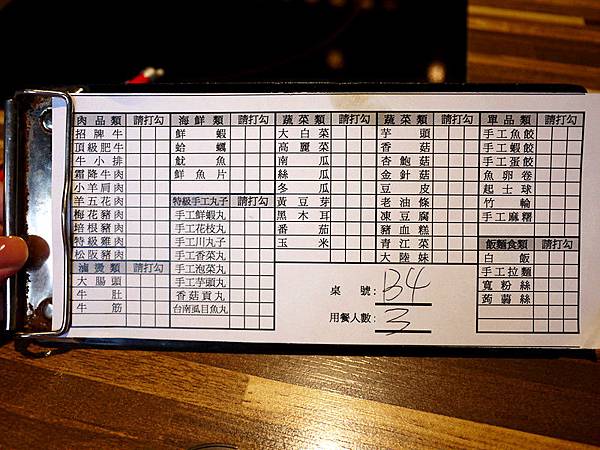 肉品類 請打勾
招牌牛
頂級肥牛
牛小排
霜降牛肉
小羊肩肉
羊五花肉
梅花豬肉
培根豬肉
特級雞肉
松阪豬肉
滷燙類 請打勾
大腸頭
牛肚
牛筋
海鮮類 請打勾
鮮蝦
蛤蠣
魷魚
鮮魚片
特級手工丸子 請打勾
手工鮮蝦丸
手工花枝丸
手工川丸子
手工香菜丸
手工泡菜丸
手工芋頭丸
香菇貢丸
台南虱目魚丸
蔬菜類 請打勾
大白菜
高麗菜
南瓜
絲瓜
冬瓜
黃豆芽
黑木耳
番茄
玉米
蔬菜類 請打勾
芋頭
香菇
杏鮑菇
金針菇
豆皮
老油條
凍豆腐
豬血糕
青江菜
大陸妹
單品類 請打勾
手工魚餃
手工蝦餃
手工蛋餃
魚卵卷
起士球
竹輪
手工麻糬
飯麵食類 請打勾
白飯
手工拉麵
寬粉絲
蒟蒻絲
桌號:B4
用餐人數:3